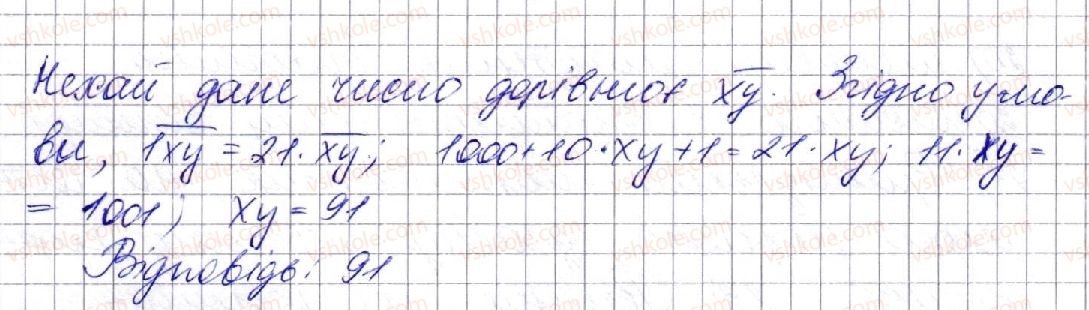 Нехай дане число дорівнює x̅y̅. Згідно умо-
ви, 1x̅y̅ = 21·x̅y̅; 1000+10·xy+1=21·xy; 11·xy=
= 1001; xy=91
Відповідь: 91